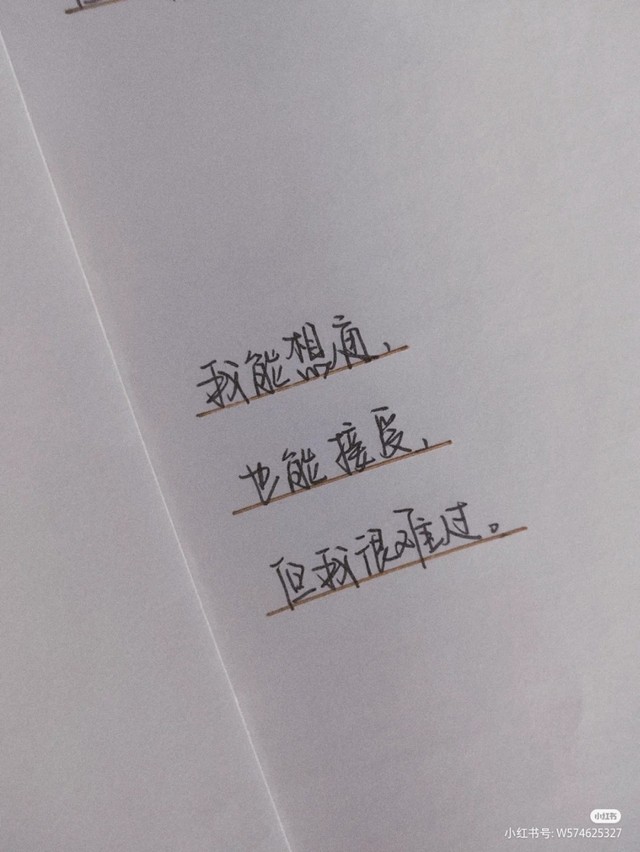 我能想通，
也能接受，
但我很难过。
小红书
小红书号: W574625327